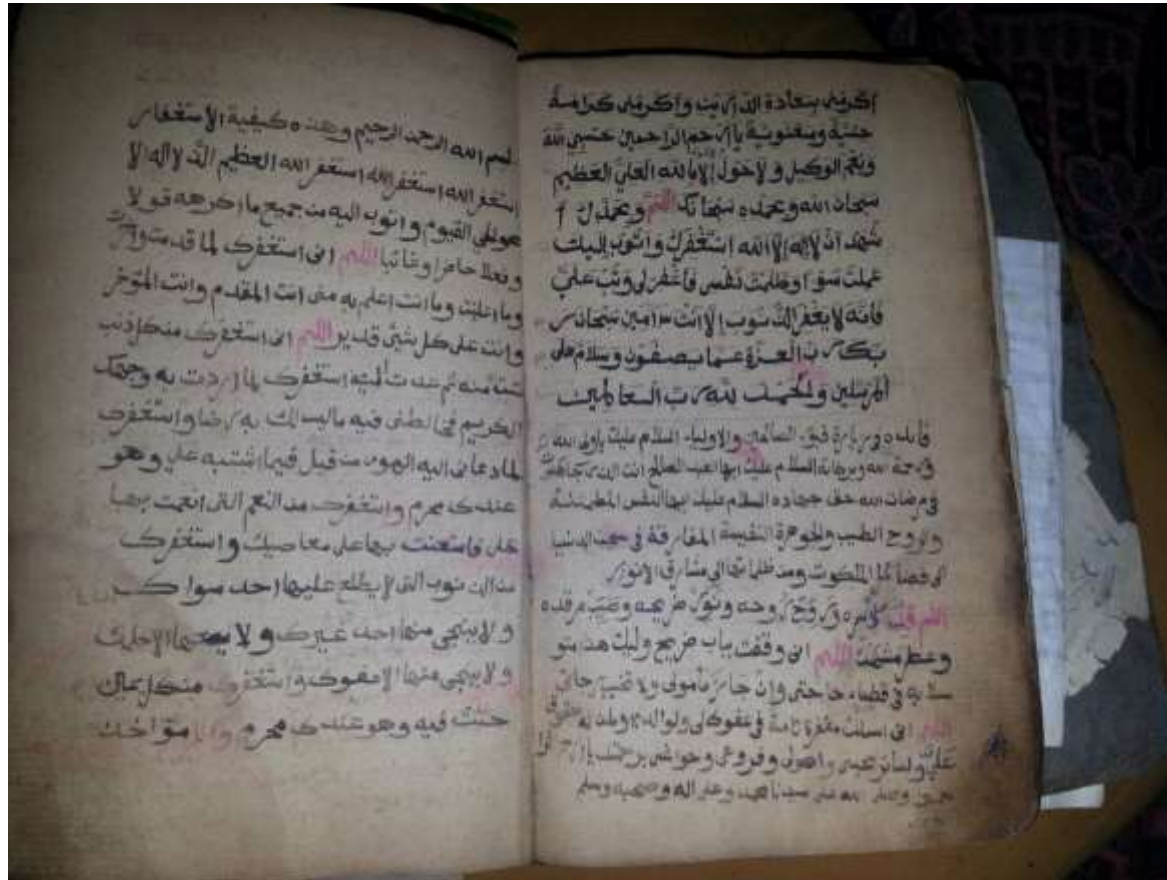 أكرمني بسعادة الدارين وأكرمني كرامة
حسية ومعنوية يا ارحم الراحمين حسبي الله
ونعم الوكيل ولا حول إلا بالله العلي العظيم
سبحان الله وبحمده سبحانك اللهم وبحمدك أ
شهد ان لا إله إلا الله استغفرك واتوب إليك
عملت سوءا وظلمت نفسي فاغفر لي وتب علي
فأنه لا يغفر الذنوب إلا انت امين سبحان ر
بك رب العزة عما يصفون وسلام على
المرسلين والحمد لله رب العالمين
فائدة زيارة الصالحين والاولياء السلام عليك يا ولي الله
ورحمة الله وبركاته السلام عليك ايها العبد الصالح انت الذي جاهدت
في مرضات الله حق جهاده السلام عليك ايها النفس المطمئنة
والروح الطيب والجوهرة النفيسة المفارقة في الدنيا
الى فضاء الملكوت ومن ظلماتها الى مشارق الانوار
اللهم روحه ونور ضريحه مرقده
وعطر اللهم اني وقفت بباب ضريح وليك هذا متو
سلا به في قضاء حاجتي وان يا مولي ولا تخيب رجائي
اللهم اني اسالك مغفرة في عفوك لي ولوالدي
علي واصولي وفروعي وحواشي برحمتك يا
وصلى الله على سيدنا محمد وعلى اله وصحبه وسلم
بسم الله الرحمن الرحيم وهذه كيفية الاستغفار
استغفر الله استغفر الله استغفر الله العظيم الذي لا اله الا
هو الحي القيوم واتوب اليه من جميع ما كرهه قولا
وفعلا حاضرا وغائبا اللهم اني استغفرك لما قدمت وما اخرت
وما اعلنت وما انت اعلم به مني انت المقدم وانت المؤخر
وانت على كل شيئ قدير اللهم اني استغفرك من كل ذنب
تبت منه ثم عدت اليه استغفرك لما اردت به وجهك
الكريم فخالطني فيه ما ليس لك به رضا واستغفرك
لما دعاني اليه الهوى من قبل فيما اشتبه علي وهو
عندك محرم واستغفرك من النعم التي انعمت بها
علي فاستعنت بها على معاصيك واستغفرك
من الذنوب التي لا يطلع عليها احد سواك
ولا ينجي منها احد غيرك ولا يسعها الا حلمك
ولا ينجي منها الا عفوك واستغفرك من كل يمين
حنثت فيه وهو عندك محرم وانا مؤاخذ